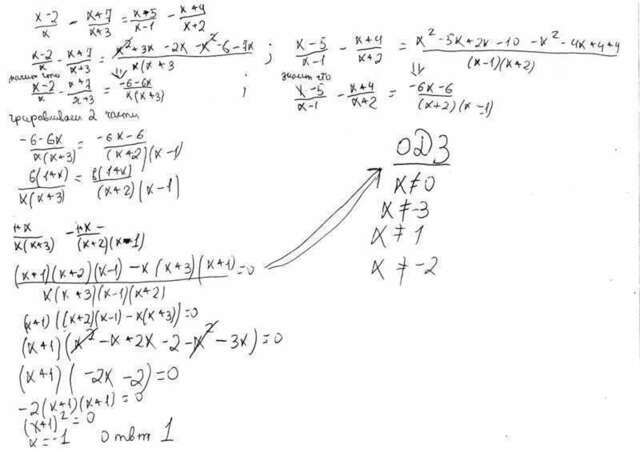 x-2/x - x+7/x+3 = x+5/x-1 - x+4/x+2
x-2/x - x+7/x+3 = x²+3x-2x-x²-6-7x/x(x+3 ; x-5/x-1 - x+4/x+2 = x²-5x+2x-10-x²-4x+4+4/(x-1)(x+2)
значит что
x-2/x - x+7/x+3 = -6-6x/x(x+3) ; значит что x-5/x-1 - x+4/x+2 = -6x-6/(x+2)(x-1)
2 части
-6-6x/x(x+3) = -6x-6/(x+2)(x-1)
6(1+x)/x(x+3) = 6(1+x)/(x+2)(x-1)
1+x/x(x+3) - 1+x/(x+2)(x-1)
(x+1)(x+2)(x-1)-x(x+3)(x+1)/x(x+3)(x-1)(x+2) = 0
(x+1)((x+2)(x-1)-x(x+3))=0
(x+1)(x²-x+2x-2-x²-3x)=0
(x+1)(-2x-2)=0
-2(x+1)(x+1)=0
(x+1)²=0
x=-1 ответ 1
ОДЗ
x≠0
x≠-3
x≠1
x≠-2